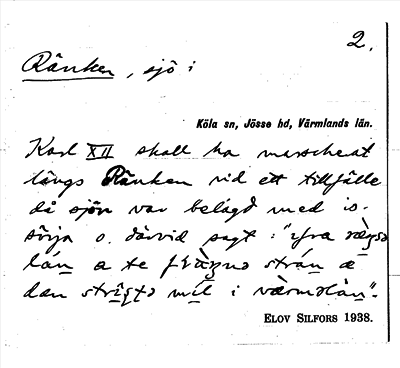 2.
Ränken, sjö i
Köla sn, Jösse hd, Värmlands län.
Karl XII skall ha marscherat
längs Ränken vid ett tillfälle
då sjön var belagd med is-
sörja o. därvid sagt: "ifra
län a te strán æ
dən mil i
ELOV SILFORS 1938.